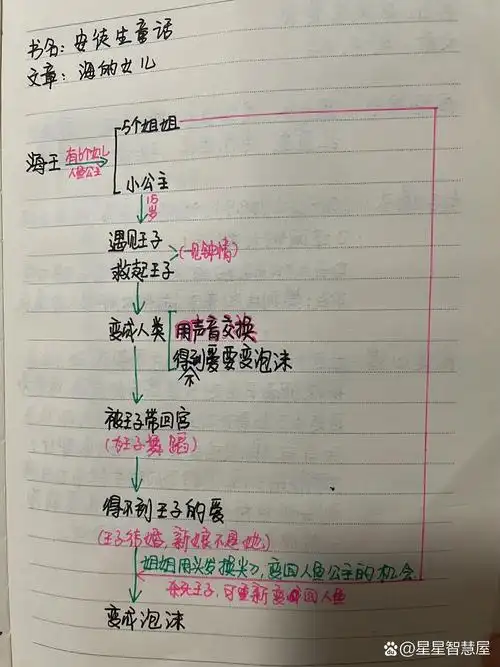 书名：安徒生童话
文章：海的女儿
5个姐姐
海王 有6个女儿
人鱼公主
小公主
15岁
遇见王子
(一见钟情)
救起王子
变成人类 用声音交换
得到爱要变泡沫
不
被王子带回宫
(为王子舞蹈)
得不到王子的爱
(王子结婚,新娘不是她)
姐姐用头发换尖刀,变回人鱼公主的机会
杀死王子,可重新变回人鱼
变成泡沫
@星星智慧屋